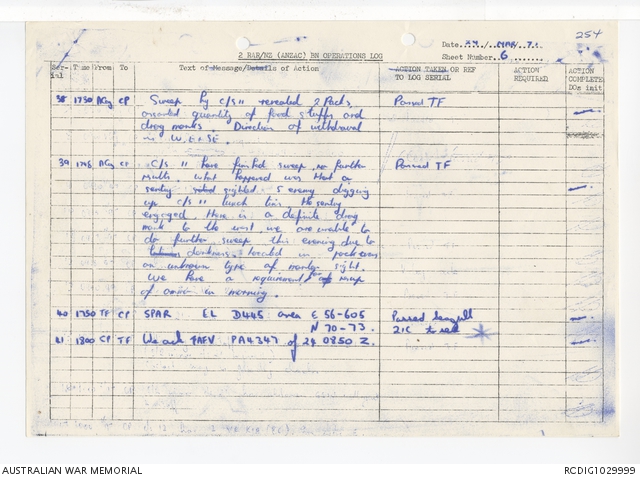 254
2 RAR/NZ (ANZAC) BN OPERATIONS LOG
Date
Sheet Number 6
Ser-ial Time From To Text of Message/Details of Action ACTION TAKEN OR REF TO LOG SERIAL ACTION REQUIRED ACTION COMPLETE DOs init
38 1730 ACoy CP Sweep by C/S 11 revealed 2 Packs, Passed TF
assorted quantity of food stuffs and
drag marks. Direction of withdrawal
W, E & SE.
39 1745 ACoy CP C/S 11 have finished sweep no further Passed TF
results. What happened was that a
sentry sighted 5 enemy digging
up C/S 11 lunch bins the sentry
engaged. There is a definite drag
mark to the west we are unable to
do further sweep this evening due to
darkness. Located in pack was
an unknown type of sight.
We have a requirement for
of in morning.
40 1750 TF CP SPAR EL D445 area E 56-605 Passed
N 70-73. 2IC
41 1800 CP TF We ack FAEV PA4347 of 24 0850 Z.
AUSTRALIAN WAR MEMORIAL
RCDIG1029999